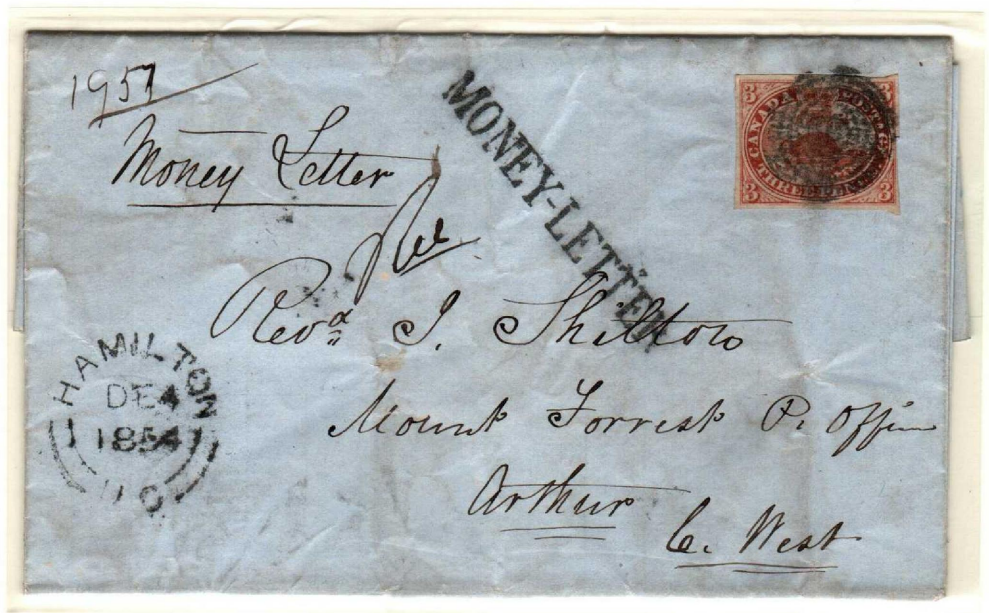 1957
Money Letter
MONEY-LETTER
3 3
CANADA POSTAGE
3 3
Revd. J. Shilton
Mount Forrest P. Office
Arthur
C. West
HAMILTON
DE 4
1854
U.C